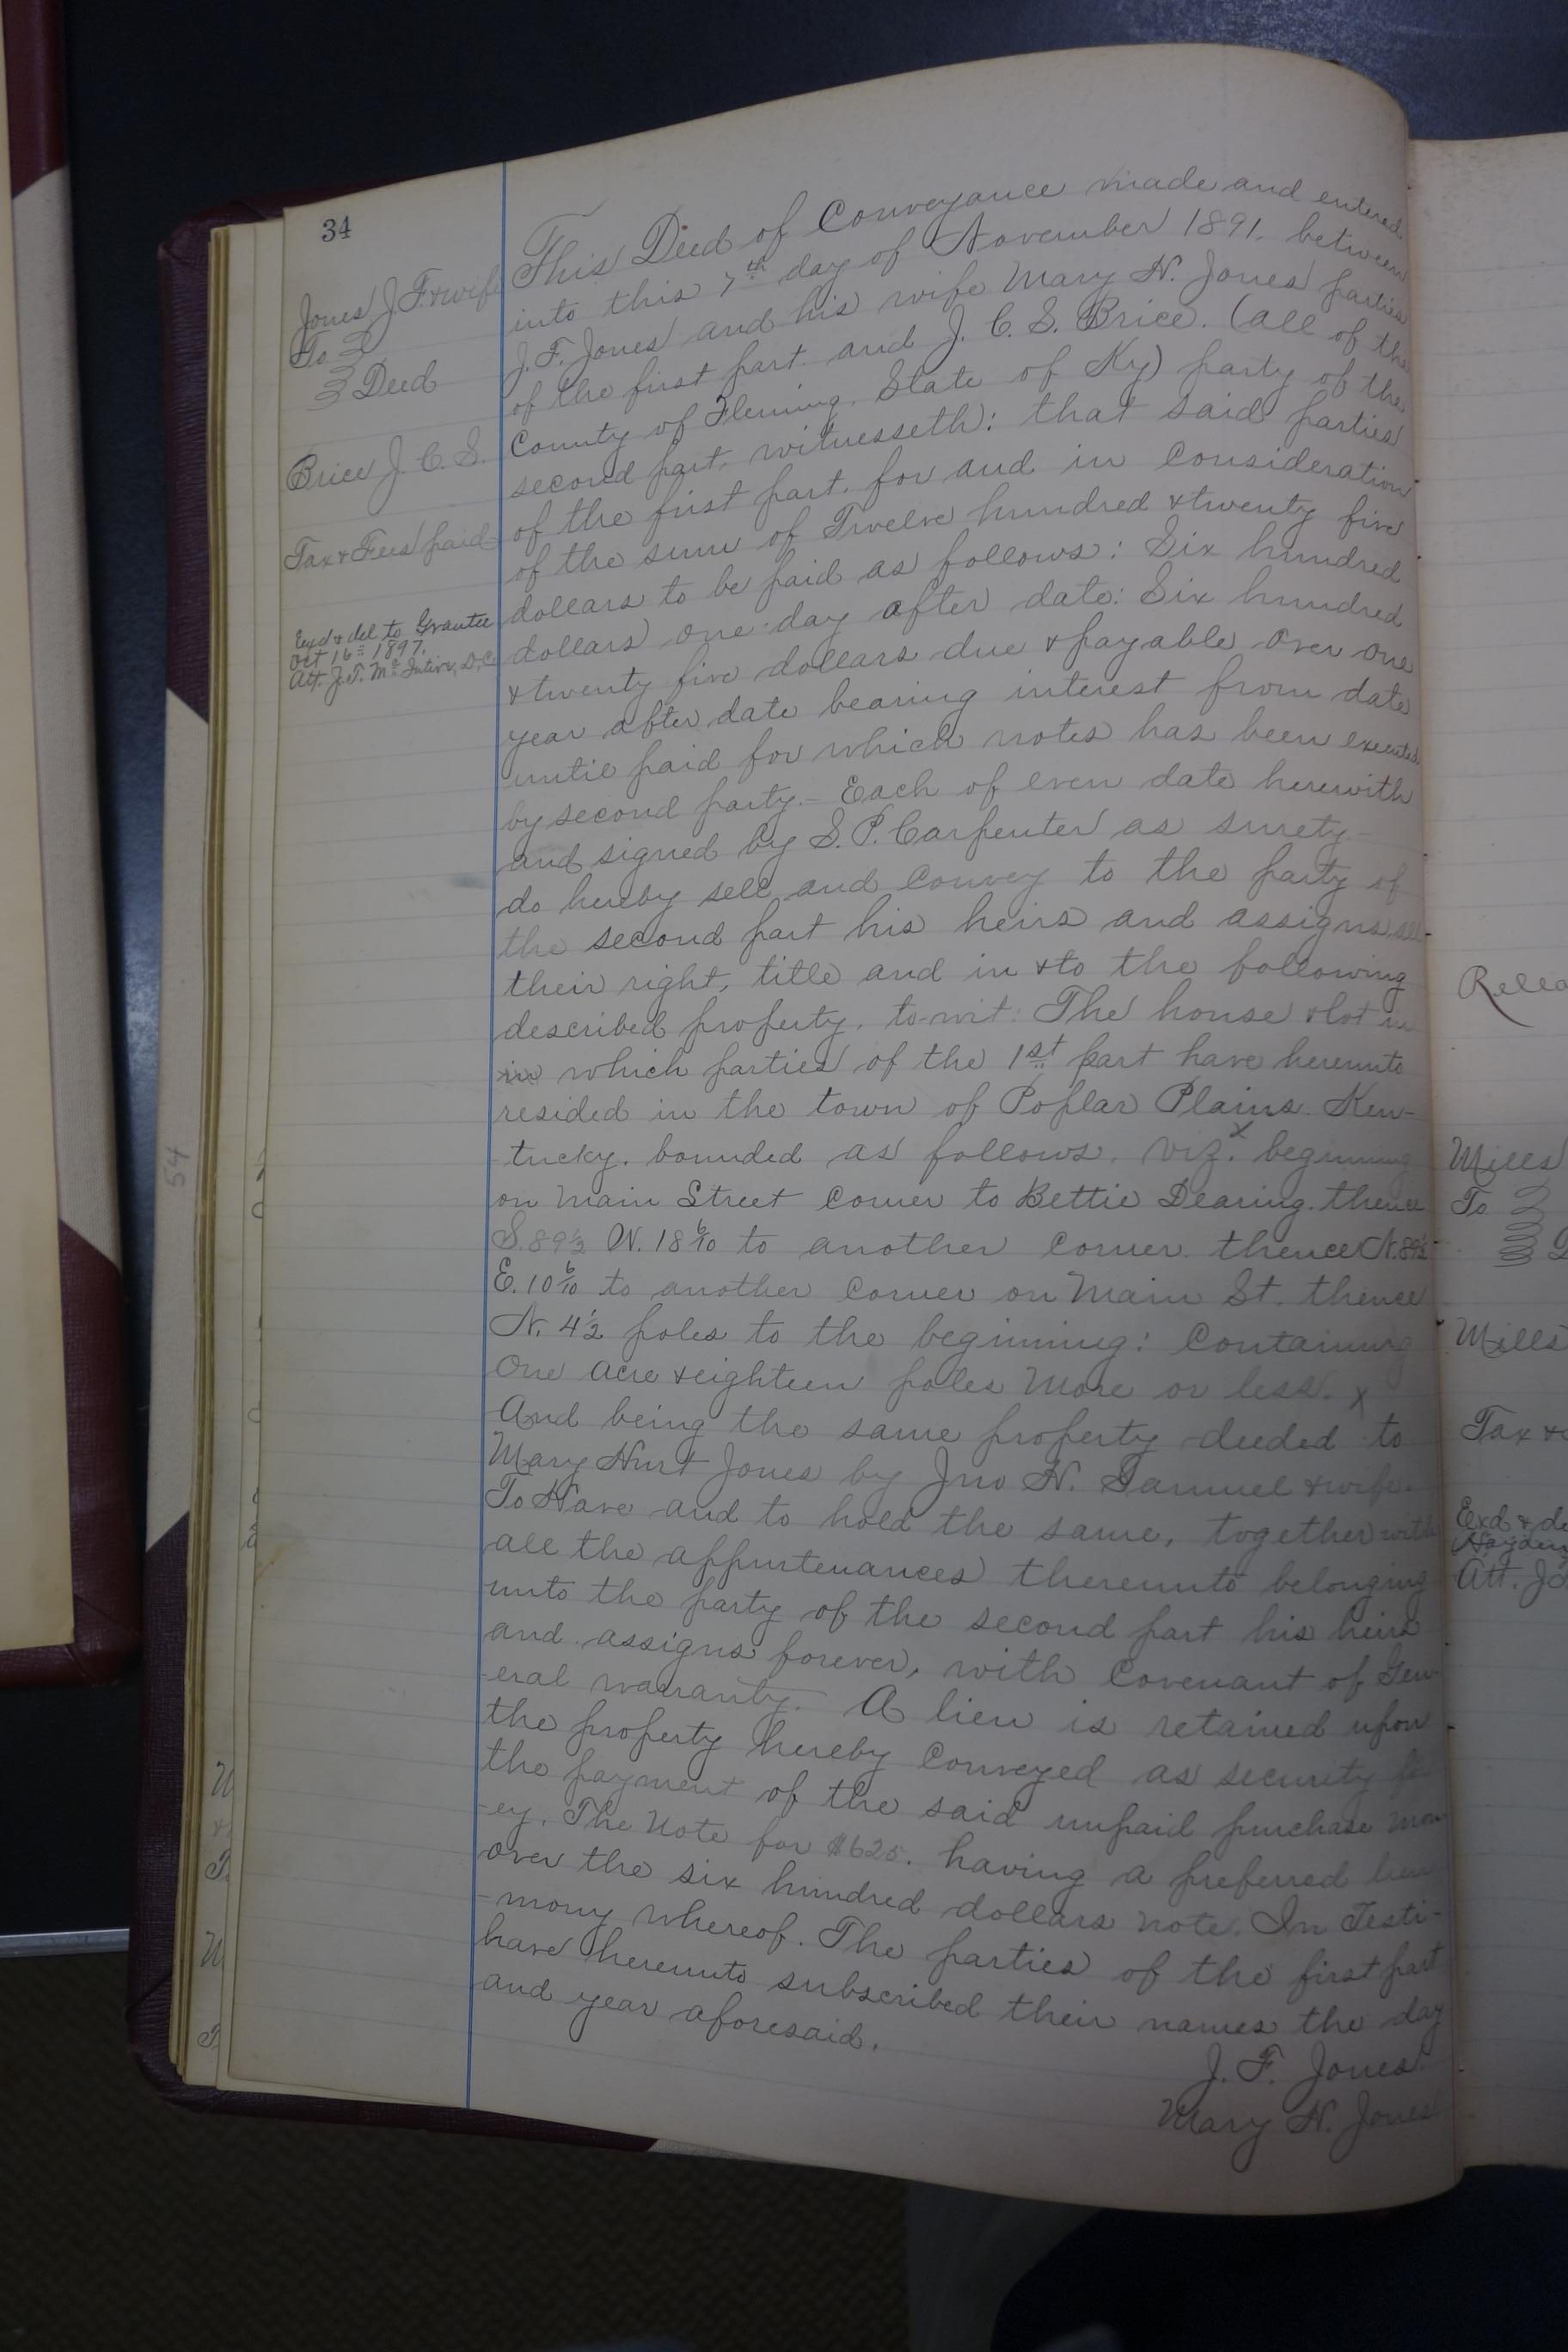 34
Jones J. F. & wife
To
Deed
Brice J. C. S.
Tax & Fees paid
Exd & del to Grantee
Oct 16" 1897.
Att. J. T. McIntire, D.C.
This Deed of Conveyance made and entered
into this 7th day of November 1891. between
J. F. Jones and his wife Mary H. Jones parties
of the first part. and J. C. S. Brice. (all of the
County of Fleming. State of Ky) party of the
second part, witnesseth: that said parties
of the first part. for and in Consideration
of the sum of Twelve hundred & twenty five
dollars to be paid as follows: Six hundred
dollars one day after date: Six hundred
& twenty five dollars due & payable over one
year after date bearing interest from date
until paid for which notes has been executed
by second party.- Each of even date herewith
and signed by S. P. Carpenter as surety-
do hereby sell and Convey to the party of
the second part his heirs and assigns, all
their right, title and in & to the following
described property. to-wit: The house & lot in
in which parties of the 1st part have hereunto
resided in the town of Poplar Plains. Ken-
-tucky. bounded as follows. viz. x beginning
on Main Street Corner to Bettie Dearing. thence
S. 89½ W. 18 6/10 to another Corner. thence N. 89½
E. 10 6/10 to another Corner on Main St. thence
N. 4½ poles to the beginning: Containing
One acre & eighteen poles more or less. x
And being the same property deeded to
Mary Hurt Jones by Jno H. Samuel & wife.
To Have and to hold the same, together with
all the appurtenances thereunto belonging
unto the party of the second part his heirs
and assigns forever, with Covenant of Gen-
-eral warranty. A lien is retained upon
the property hereby Conveyed as security for
the payment of the said unpaid purchase mon-
-ey. The Note for $625. having a preferred lien
over the six hundred dollars note. In Testi-
-mony whereof. The parties of the first part
have hereunto subscribed their names the day
and year aforesaid.
J. F. Jones
Mary H. Jones
54
Relea
Mills
To
Mills
Tax &
Exd & de
Hayden
Att. J